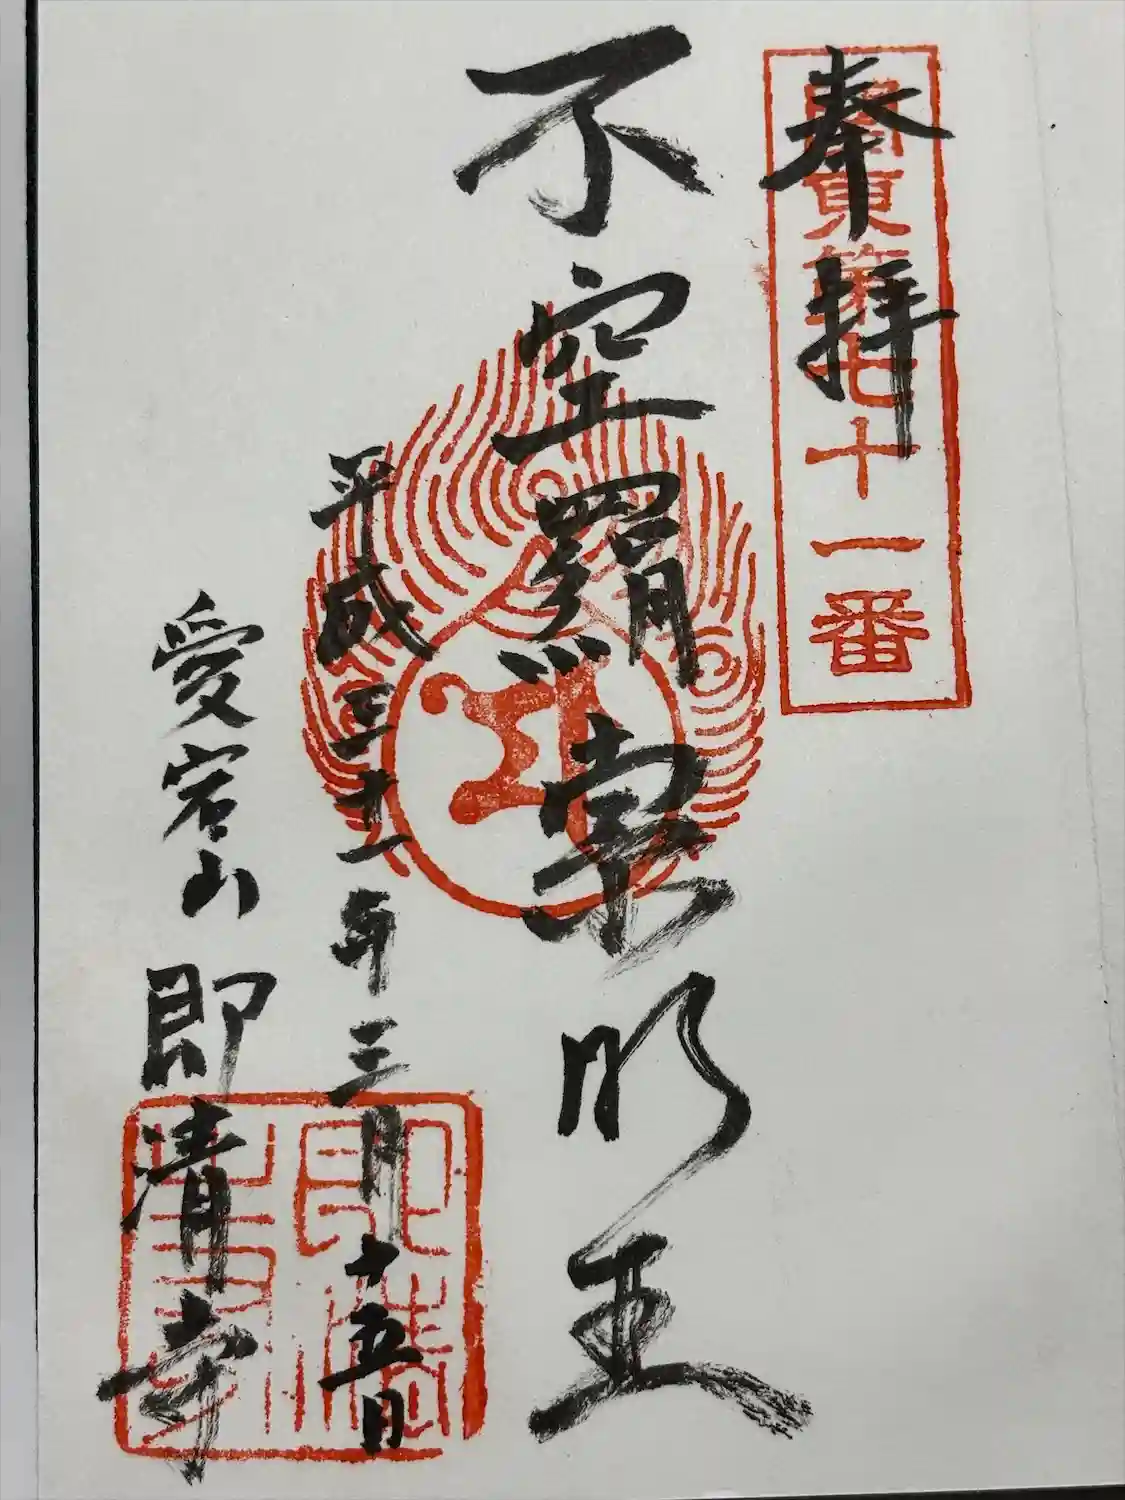 奉拝
關東第七十一番
不空羂索明王
平成三十一年三月十五日
愛宕山
即清寺